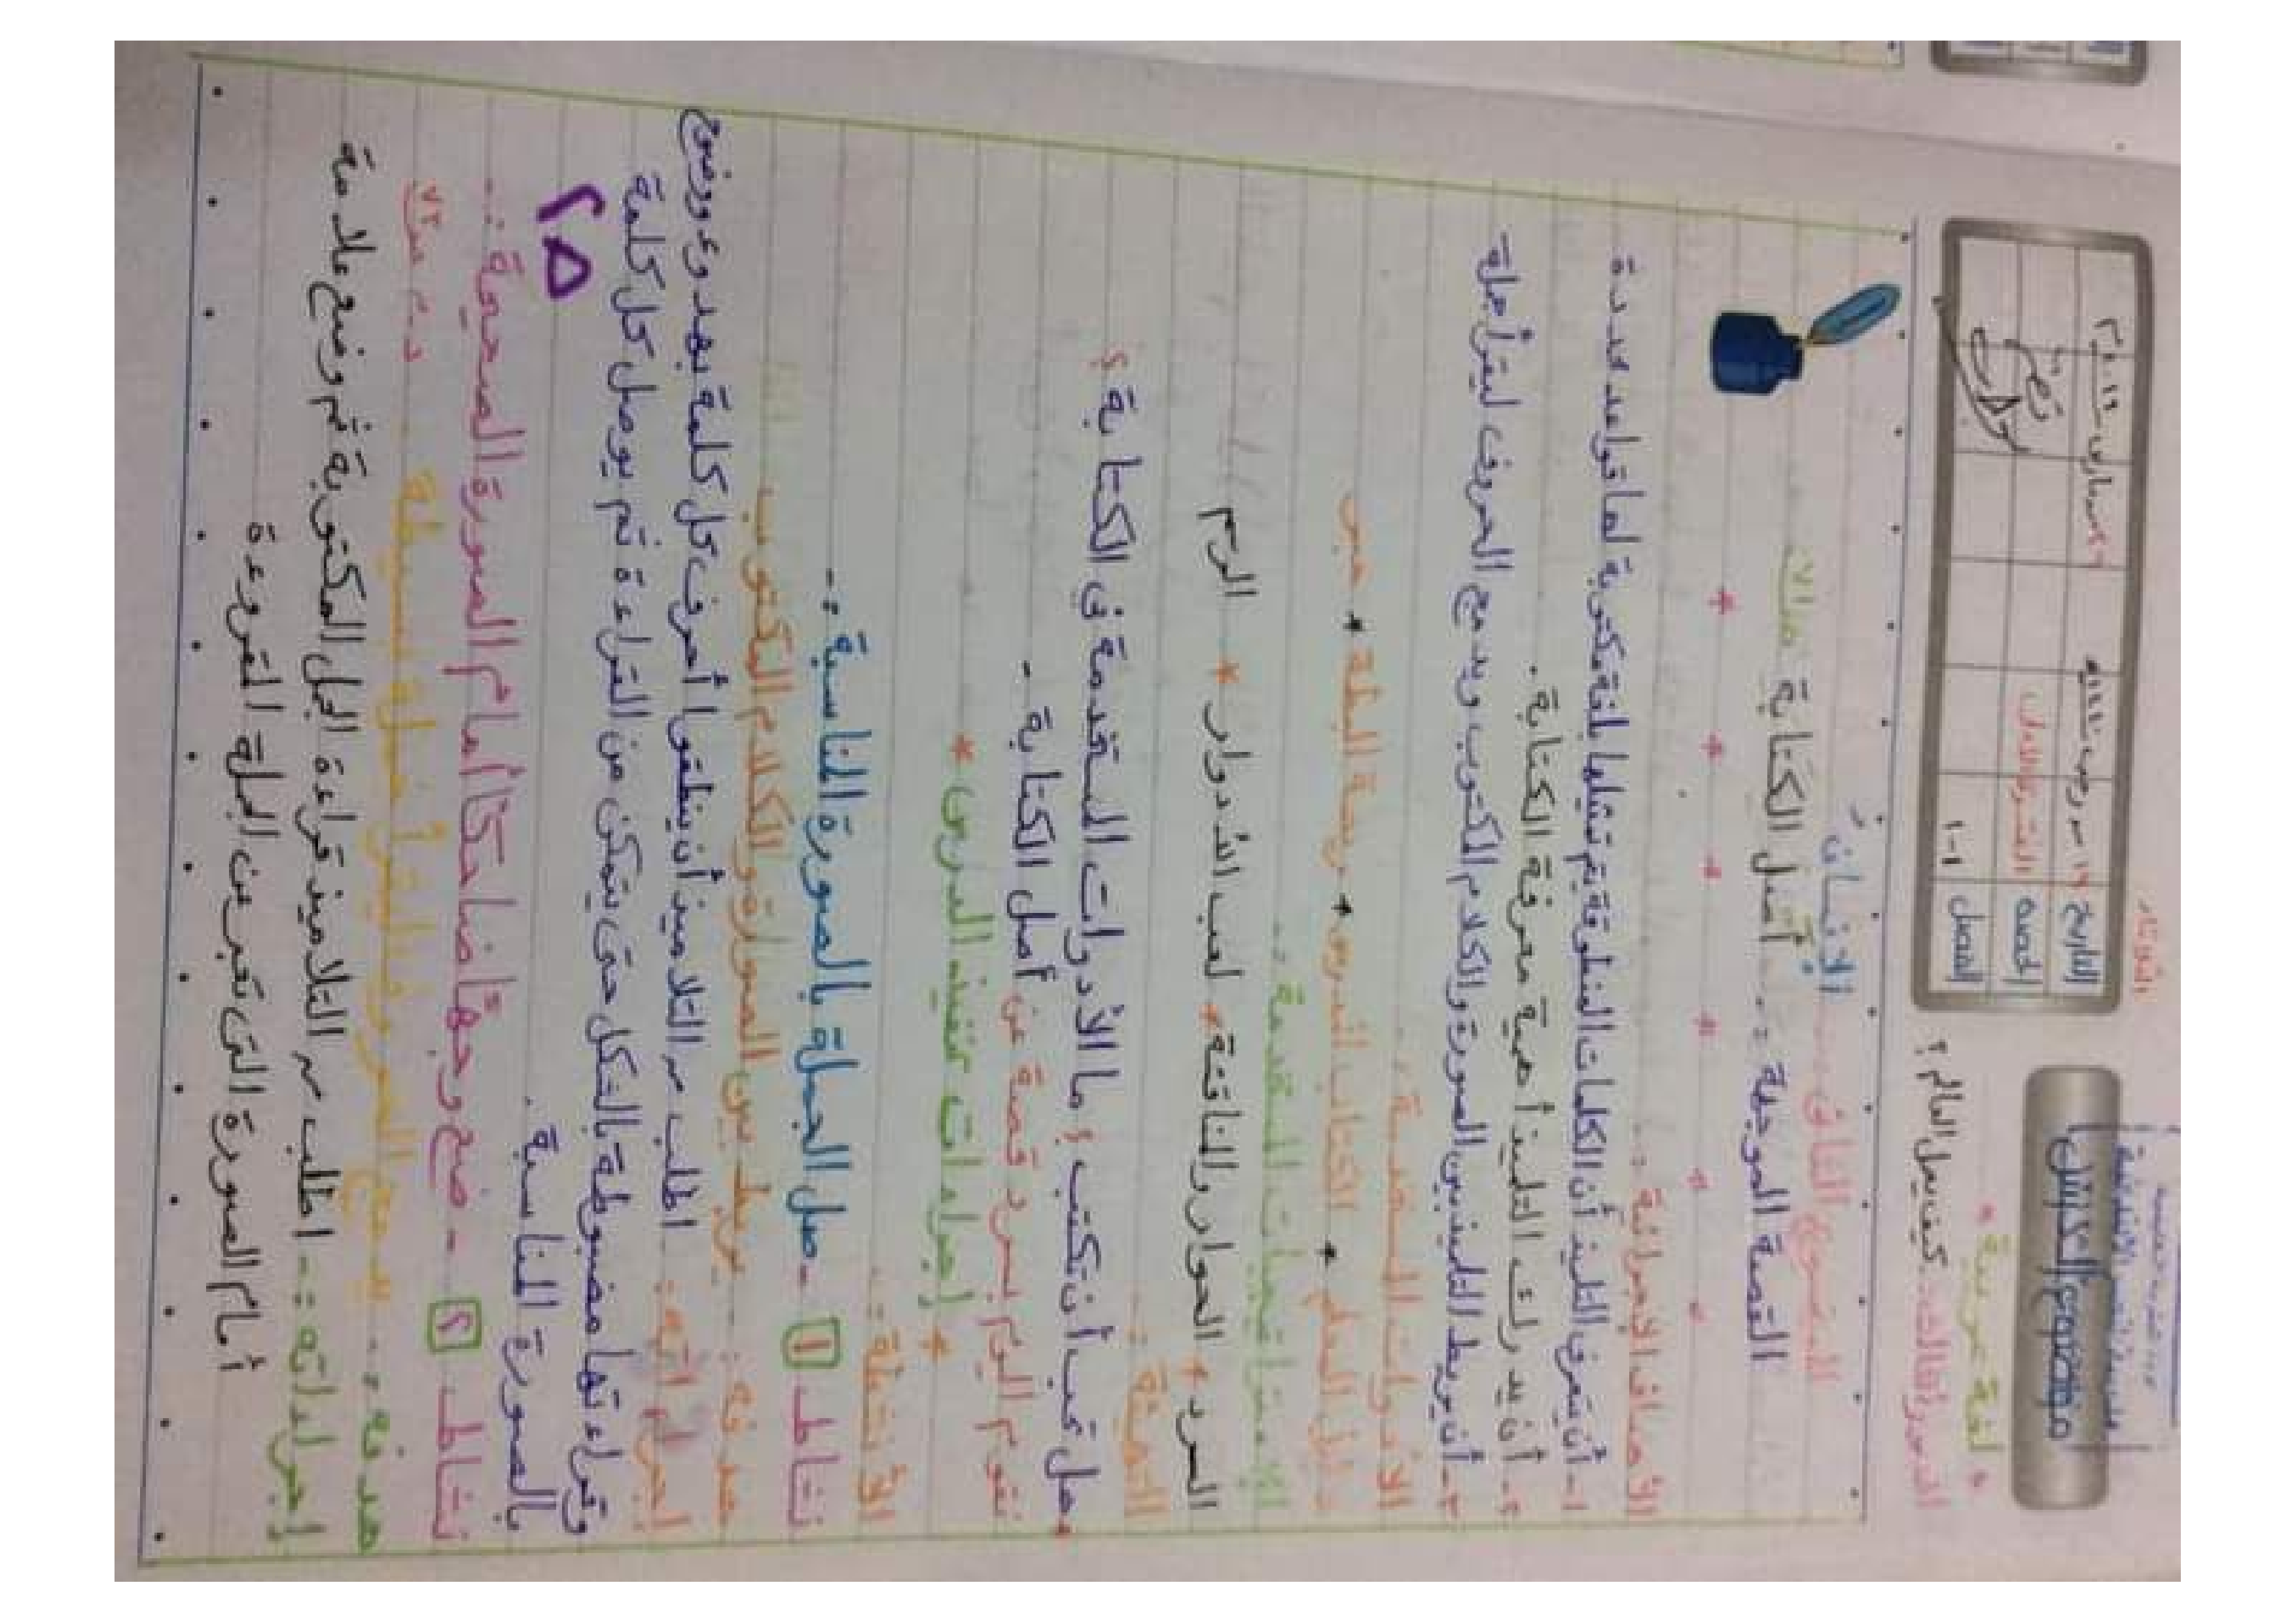 * لغة عربية *
المحور الثالث:- كيف يعمل العالم؟
التاريخ
الحصه
الفصل ١-١
الموضوع الثانى:- الافتتان
القصة الموجهة :- أصل الكتابة
* * * * * *
الأهداف الإجرائية :-
١- أن يتعرف التلميذ أن الكلمات المنطوقة يتم تمثيلها بلغة مكتوبة لها قواعد محددة
٢- أن يدرك التلميذ أهمية معرفة الكتابة .
٣- أن يربط التلميذ بين الصورة والكلام المكتوب ويدمج الحروف ليقرأ جملة
الأدوات المستخدمة :-
دليل المعلم * الكتاب المدرسى * ريشة البطة * حبر
الإستراتيجيات المستخدمة :-
السرد * الحوار والمناقشة * لعب الأدوار * الرسم
التهيئة :-
* هل تحب أن تكتب ؟ ما الأدوات المستخدمة فى الكتابة ؟
نقوم اليوم بسرد قصة عن أصل الكتابة .
* إجراءات تنفيذ الدرس *
الأنشطة :-
نشاط ١ - صل الجملة بالصورة المناسبة :-
هدفه :- يربط بين الصورة والكلام المكتوب
إجراءاته :- اطلب من التلاميذ أن ينطقوا أحرف كل كلمة بهدوء ووضوح
وقراءتها مضبوطة بالشكل حتى يتمكن من القراءة ثم يوصل كل كلمة
بالصورة المناسبة .
٢٥
نشاط ٢ - ضع وجهًا ضاحكًا أمام الصورة الصحيحة :-
هدفه :- يدمج الحروف ليقرأ جملة بسيطة
إجراءاته :- اطلب من التلاميذ قراءة الجمل المكتوبة ثم وضع علامة
أمام الصورة التى تعبر عن الجملة المقروءة